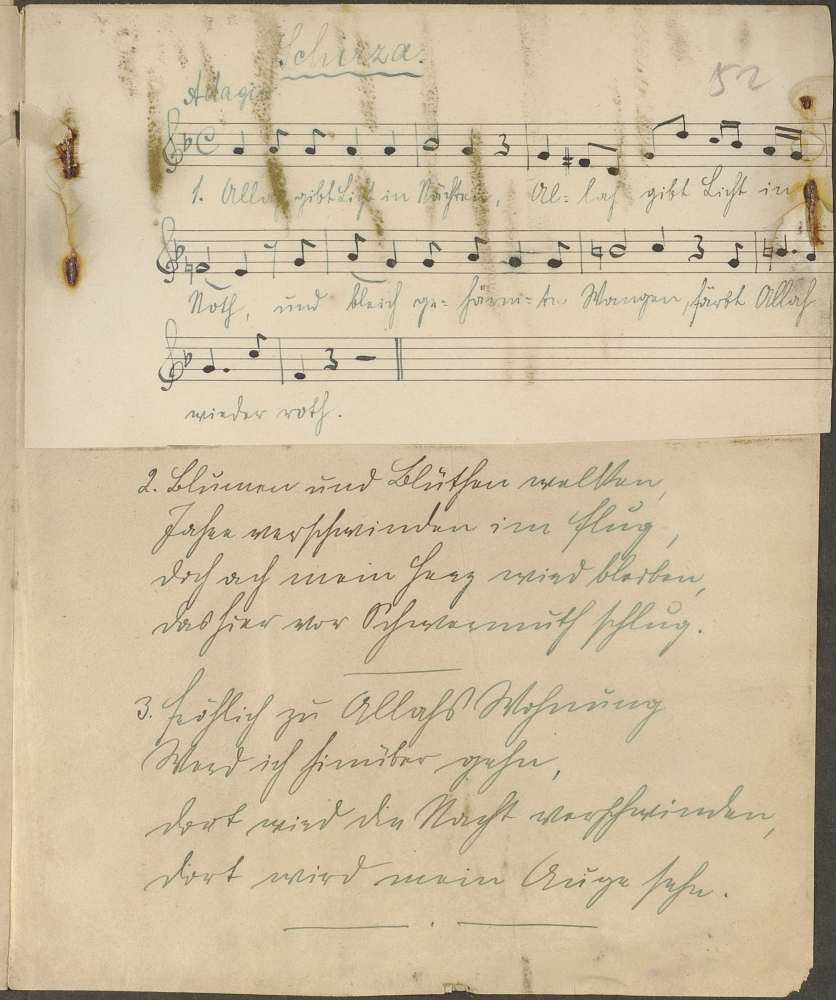 Schirza.
52
Adagio
1. Allah gibt Licht in Nächten, Al= lah gibt Licht in
Noth, und bleich ge= härm= te Wangen, färbt Allah
wieder roth.
2. Blumen und Blüthen welken,
Jahre verschwinden im Flug,
doch ach mein Herz wird bleiben,
das hier vor Schwermuth schlug.
3. Fröhlich zu Allahs Wohnung
Werd ich hinüber gehn,
dort wird die Nacht verschwinden,
dort wird mein Auge sehn.